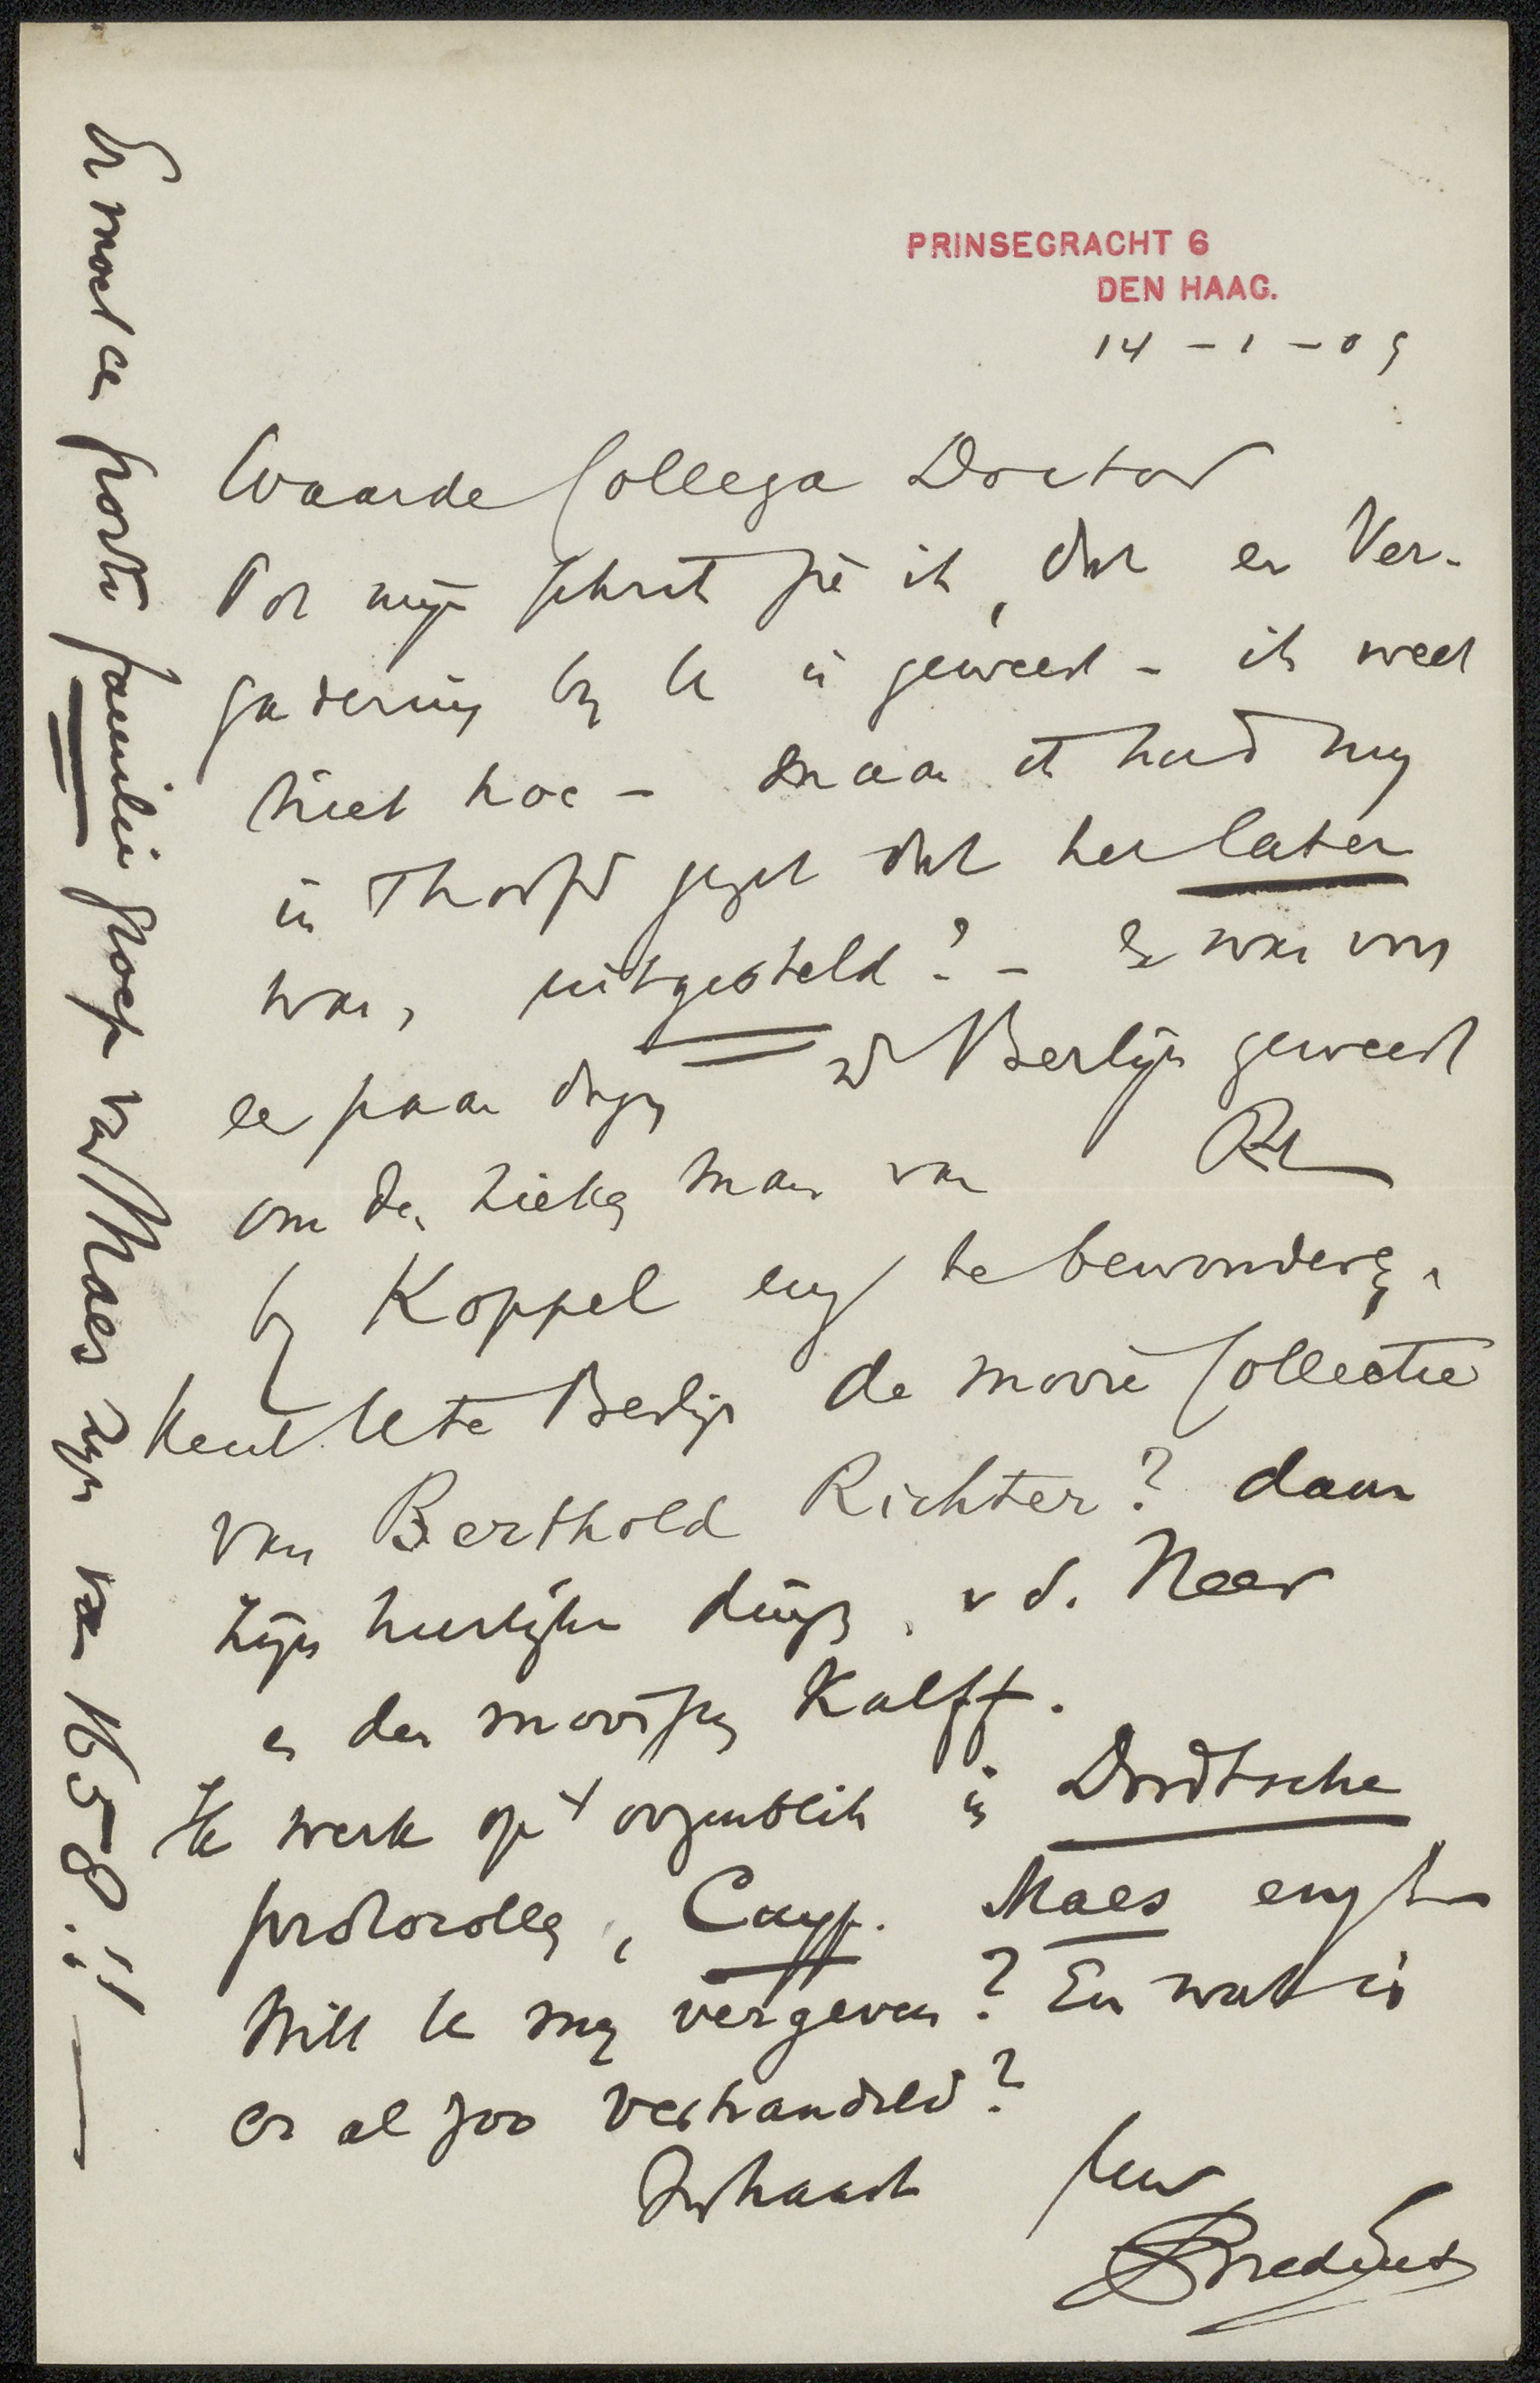 PRINSEGRACHT 6
DEN HAAG.
14 - 1 - 09
Waarde Collega Doctor
Tot mijn schrik zie ik, dat er Ver-
gadering by U is geweest - ik weet
niet hoe - maar ik had my
in 't hoofd gezet dat het later
was, uitgesteld? - Ik was
een paar dagen Berlijn geweest
om den zieken man van
by Koppel enz te bewonderen.
Kent U te Berlijn de mooie Collectie
van Berthold Richter? daar
zijn heerlijke dingen, v d. Neer
en den mooisten Kalff.
Ik werk op 't oogenblik in Dordtsche
protocollen, Cuyp. Maes enz
Wilt U my vergeven? En wat is
er al zoo verhandeld?
In haast Uw
ABredius
Er moet een portr familie groep van Maes zijn van 1658!!